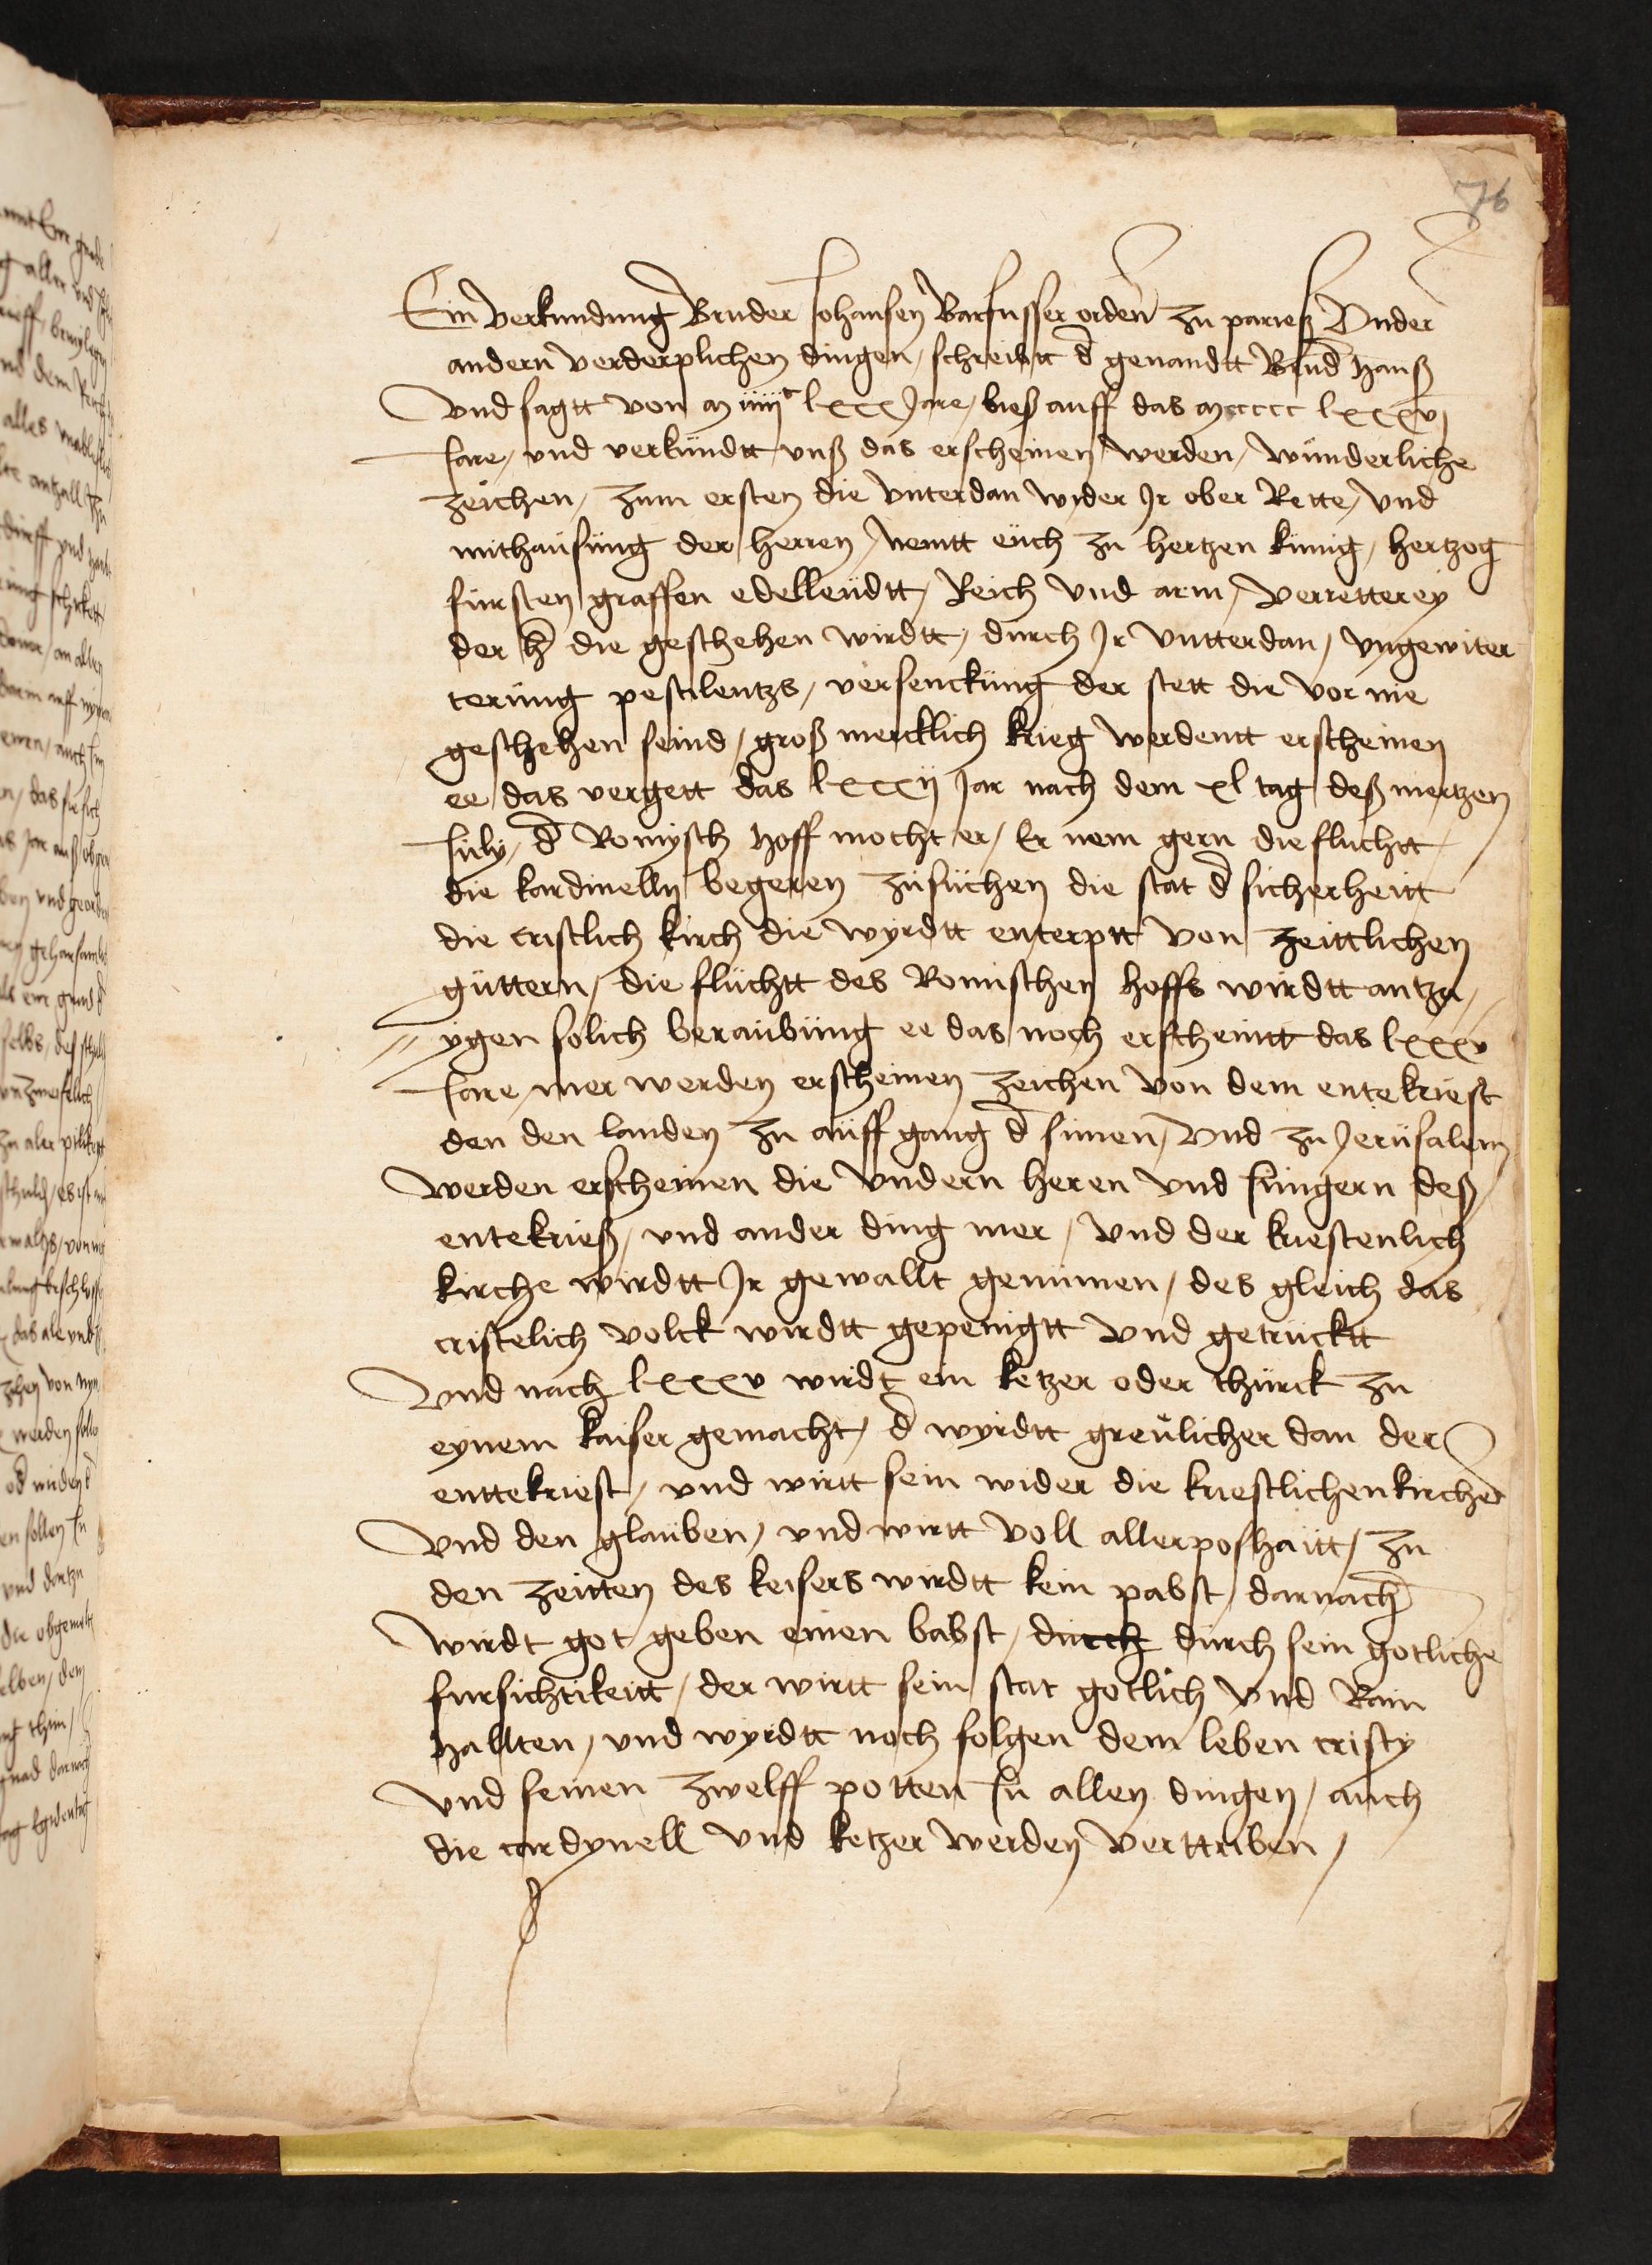 76
Ein verkundung Bruder Johansen Barfusser orden zu parieß Under
andern verderplichen dingen / schreibtt d genandtt Brud Hanß
Und sagtt von M iiiiᶜ lxxx Jare / bieß auff das Mcccc lxxxvj
Jare / und verkündtt unß das erscheinen werden / wunderliche
zeichen / zum ersten die unterdan wyder Jr ober Rette / und
mithaüsüng der herren / nemtt eüch zu hertzen künig / hertzog
fürsten graffen edelleüdtt / Reich und arm / verretterey
der h die geschehen wirdtt / durch Jr untterdan / ungewiter
terüng pestilentzs / versenckung der stett die vor nie
geschehen seind / groß mercklich krieg werdentt erscheinen
ee das vergett das lxxxij Jar nach dem xl tag deß mertzen
July / d Romysch Hoff mocht er / Er nem gern die fluchtt
die kardinelln begeren zusüchen die stat d sicherheitt
die cristlich kirch die wyrdtt enterptt von zeittlichen
güttern / die flüchtt des Romischen hoffs wirdtt antza /
ygen solich beraubüng ee das noch erscheintt das lxxxv
Jare / mer werden erscheinen zeichen von dem entekriest
den den landen zu aüff gang d sunen / und zu Jerüsalem
werden erscheinen die undern heren und Jungern deß
entekrieß / und ander ding mer / und der kriestenlich
kirche wirdtt Jr gewallt genumen / des gleich das
cristelich volck wirdtt gepenigtt und getrücktt
Und nach lxxxv wirdt ein ketzer oder thürck zu
eynem kaiser gemacht / d wyrdtt greülicher dan der
enttekriest / und wirtt sein wider die kriestlichen kirchen
Und den glauben / und wirtt voll aller poshaitt / zu
den zeitten des keisers wirdtt kein pabst / darnach
wirdt got geben einen babst / durch durch sein gotliche
fursichtikeitt / der wirtt sein stat gotlich und Rain
Hallten / und wyrdtt noch folgen dem leben cristy
Und seinen zwelff potten Jn allen dingen / auch
die cardynell und ketzer werden verttriben /